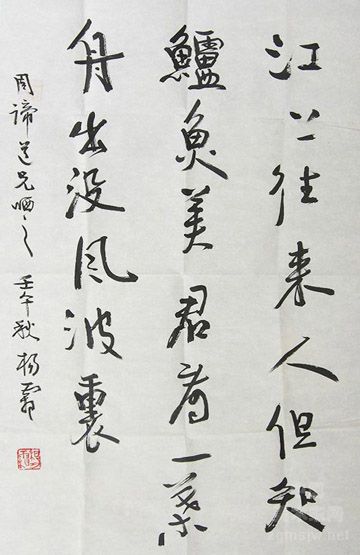 江上往来人但知
鱸魚美君看一葉
舟出没風波裏
周諦道兄哂之 壬午秋 楊